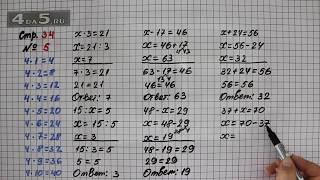 4DA5.RU
Стр. 34
№ 5
4·1=4
4·2=8
4·3=12
4·4=16
4·5=20
4·6=24
4·7=28
4·8=32
4·9=36
4·10=40
x·3=21
x=21:3
x=7
7·3=21
21=21
Ответ: 7
15:x=5
x=15:5
x=3
15:3=5
5=5
Ответ: 3
x-17=46
x=46+17
x=63
63-17=46
46=46
Ответ: 63
48-x=29
x=48-29
x=19
48-19=29
29=29
Ответ: 19
x+24=56
x=56-24
x=32
32+24=56
56=56
Ответ: 32
37+x=70
x=70-37
x=